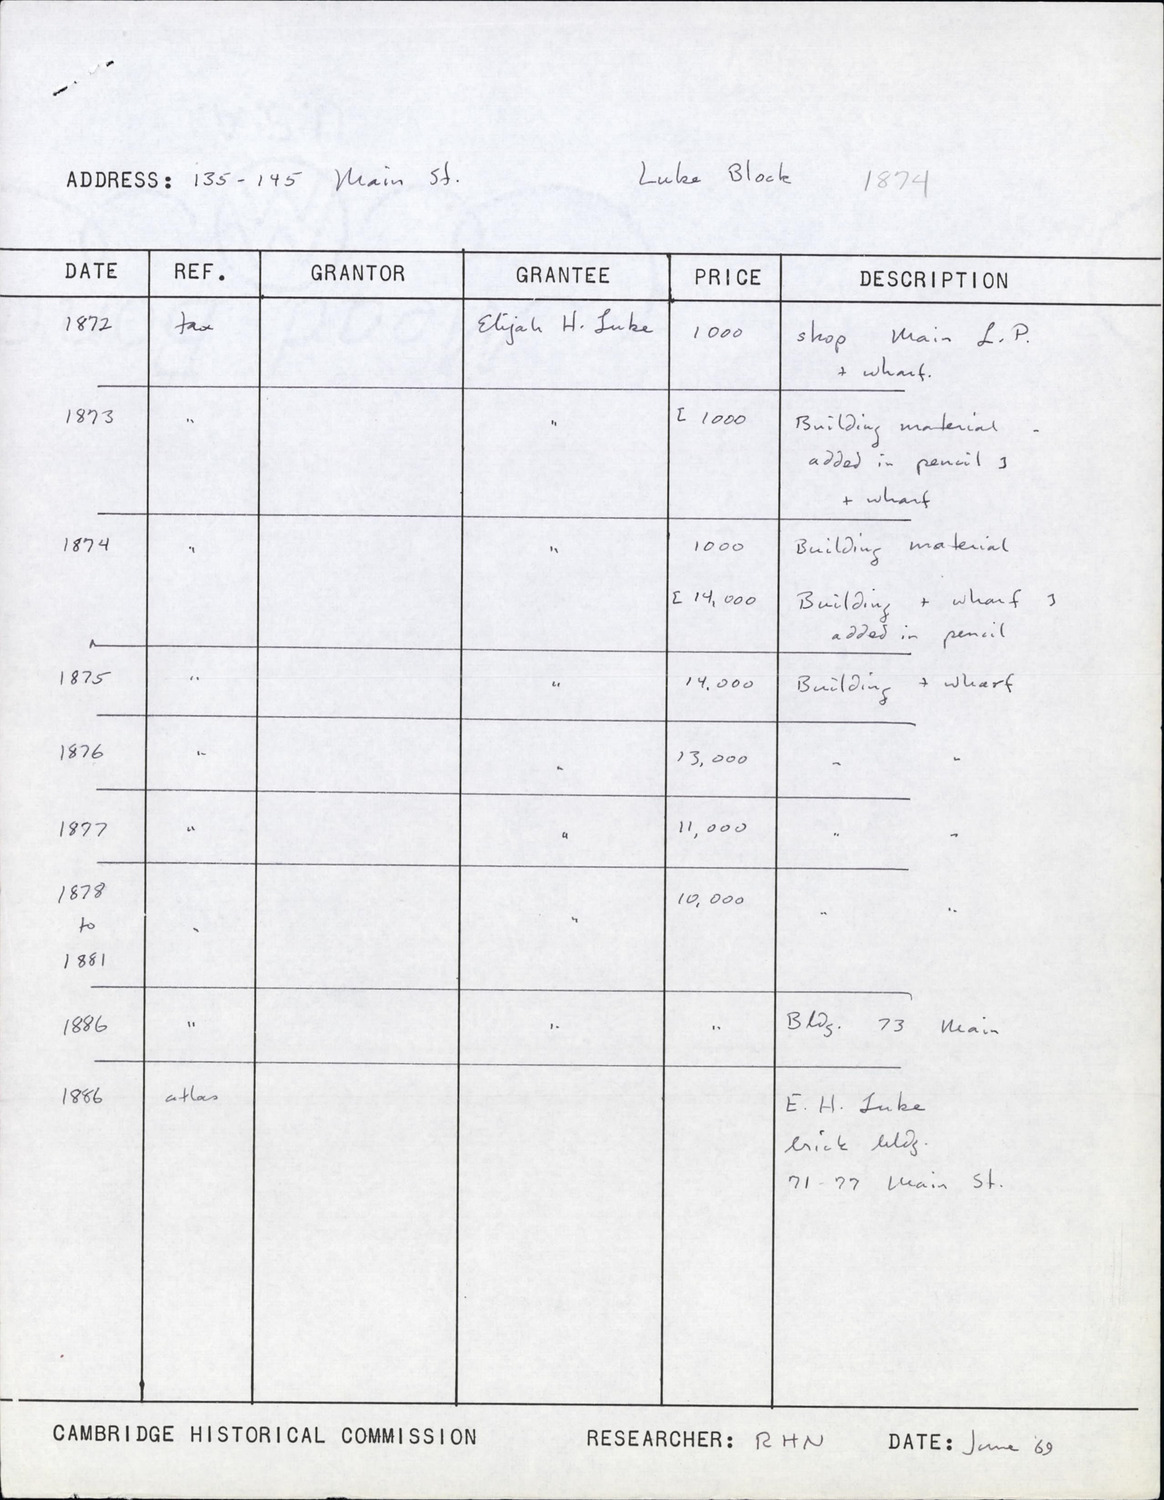 ADDRESS: 135-145 Main St. Luke Block 1874
DATE REF. GRANTOR GRANTEE PRICE DESCRIPTION
1872 tax Elijah H. Luke 1000 shop Main L.P.
+ wharf.
1873 " " [ 1000 Building material -
added in pencil ]
+ wharf
1874 " " 1000 Building material
[ 14,000 Building + wharf ]
added in pencil
1875 " " 14,000 Building + wharf
1876 " " 13,000 " "
1877 " " 11,000 " "
1878 10,000
to " " " "
1881
1886 " " " Bldg. 73 Main
1886 atlas E. H. Luke
brick bldg.
71-77 Main St.
CAMBRIDGE HISTORICAL COMMISSION RESEARCHER: RHN DATE: June '69